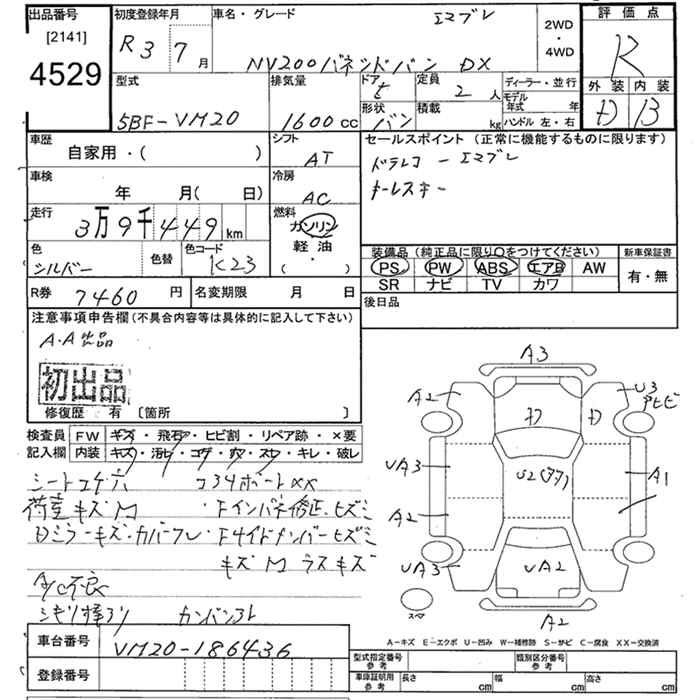 出品番号
[2141]
4529
初度登録年月
R3 7月
車名・グレード
エマブレ
NV200バネットバン DX
2WD
・
4WD
評価点
R
外装 内装
D B
型式
5BF-VM20
排気量
1600cc
ドア
形状
バン
定員
2人
積載
kg
ディーラー・並行
モデル年式 年
ハンドル 左・右
車歴
自家用・( )
シフト
AT
セールスポイント (正常に機能するものに限ります)
ドラレコ エマブレ
キーレスキー
車検
年 月( 日)
冷房
AC
走行
3万9千449km
燃料
ガソリン
軽油
( ・ )
色
シルバー
色替
色コード
K23
装備品 (純正品に限り○をつけてください)
PS PW ABS エアB AW
SR ナビ TV カワ
新車保証書
有・無
R券 7460円
名変期限 月 日
後日品
注意事項申告欄(不具合内容等は具体的に記入して下さい)
A.A出品
初出品
修復歴 有 [箇所 ]
検査員 FW キズ・飛石・ヒビ割・リペア跡・×要
記入欄 内装 キズ・汚レ・コゲ・穴・スレ・キレ・破レ
シートコゲ穴 コ34ボート××
荷室キズM Fインパネ修正、ヒズミ
Dミラーキズ・カバーワレ・Fサイドメンバーヒズミ
キズM ラスキズ
A/C不良
カンバン
A3
A2
U3
D
D
UA3
U2
A1
A2
UA3
UA2
スペア
A2
A－キズ E－エクボ U－凹み W－補修跡 S－サビ C－腐食 XX－交換済
車台番号 VM20-186436
登録番号
型式指定番号 参考
類別区分番号 参考
車庫証明用 参考
長さ cm
幅 cm
高さ cm